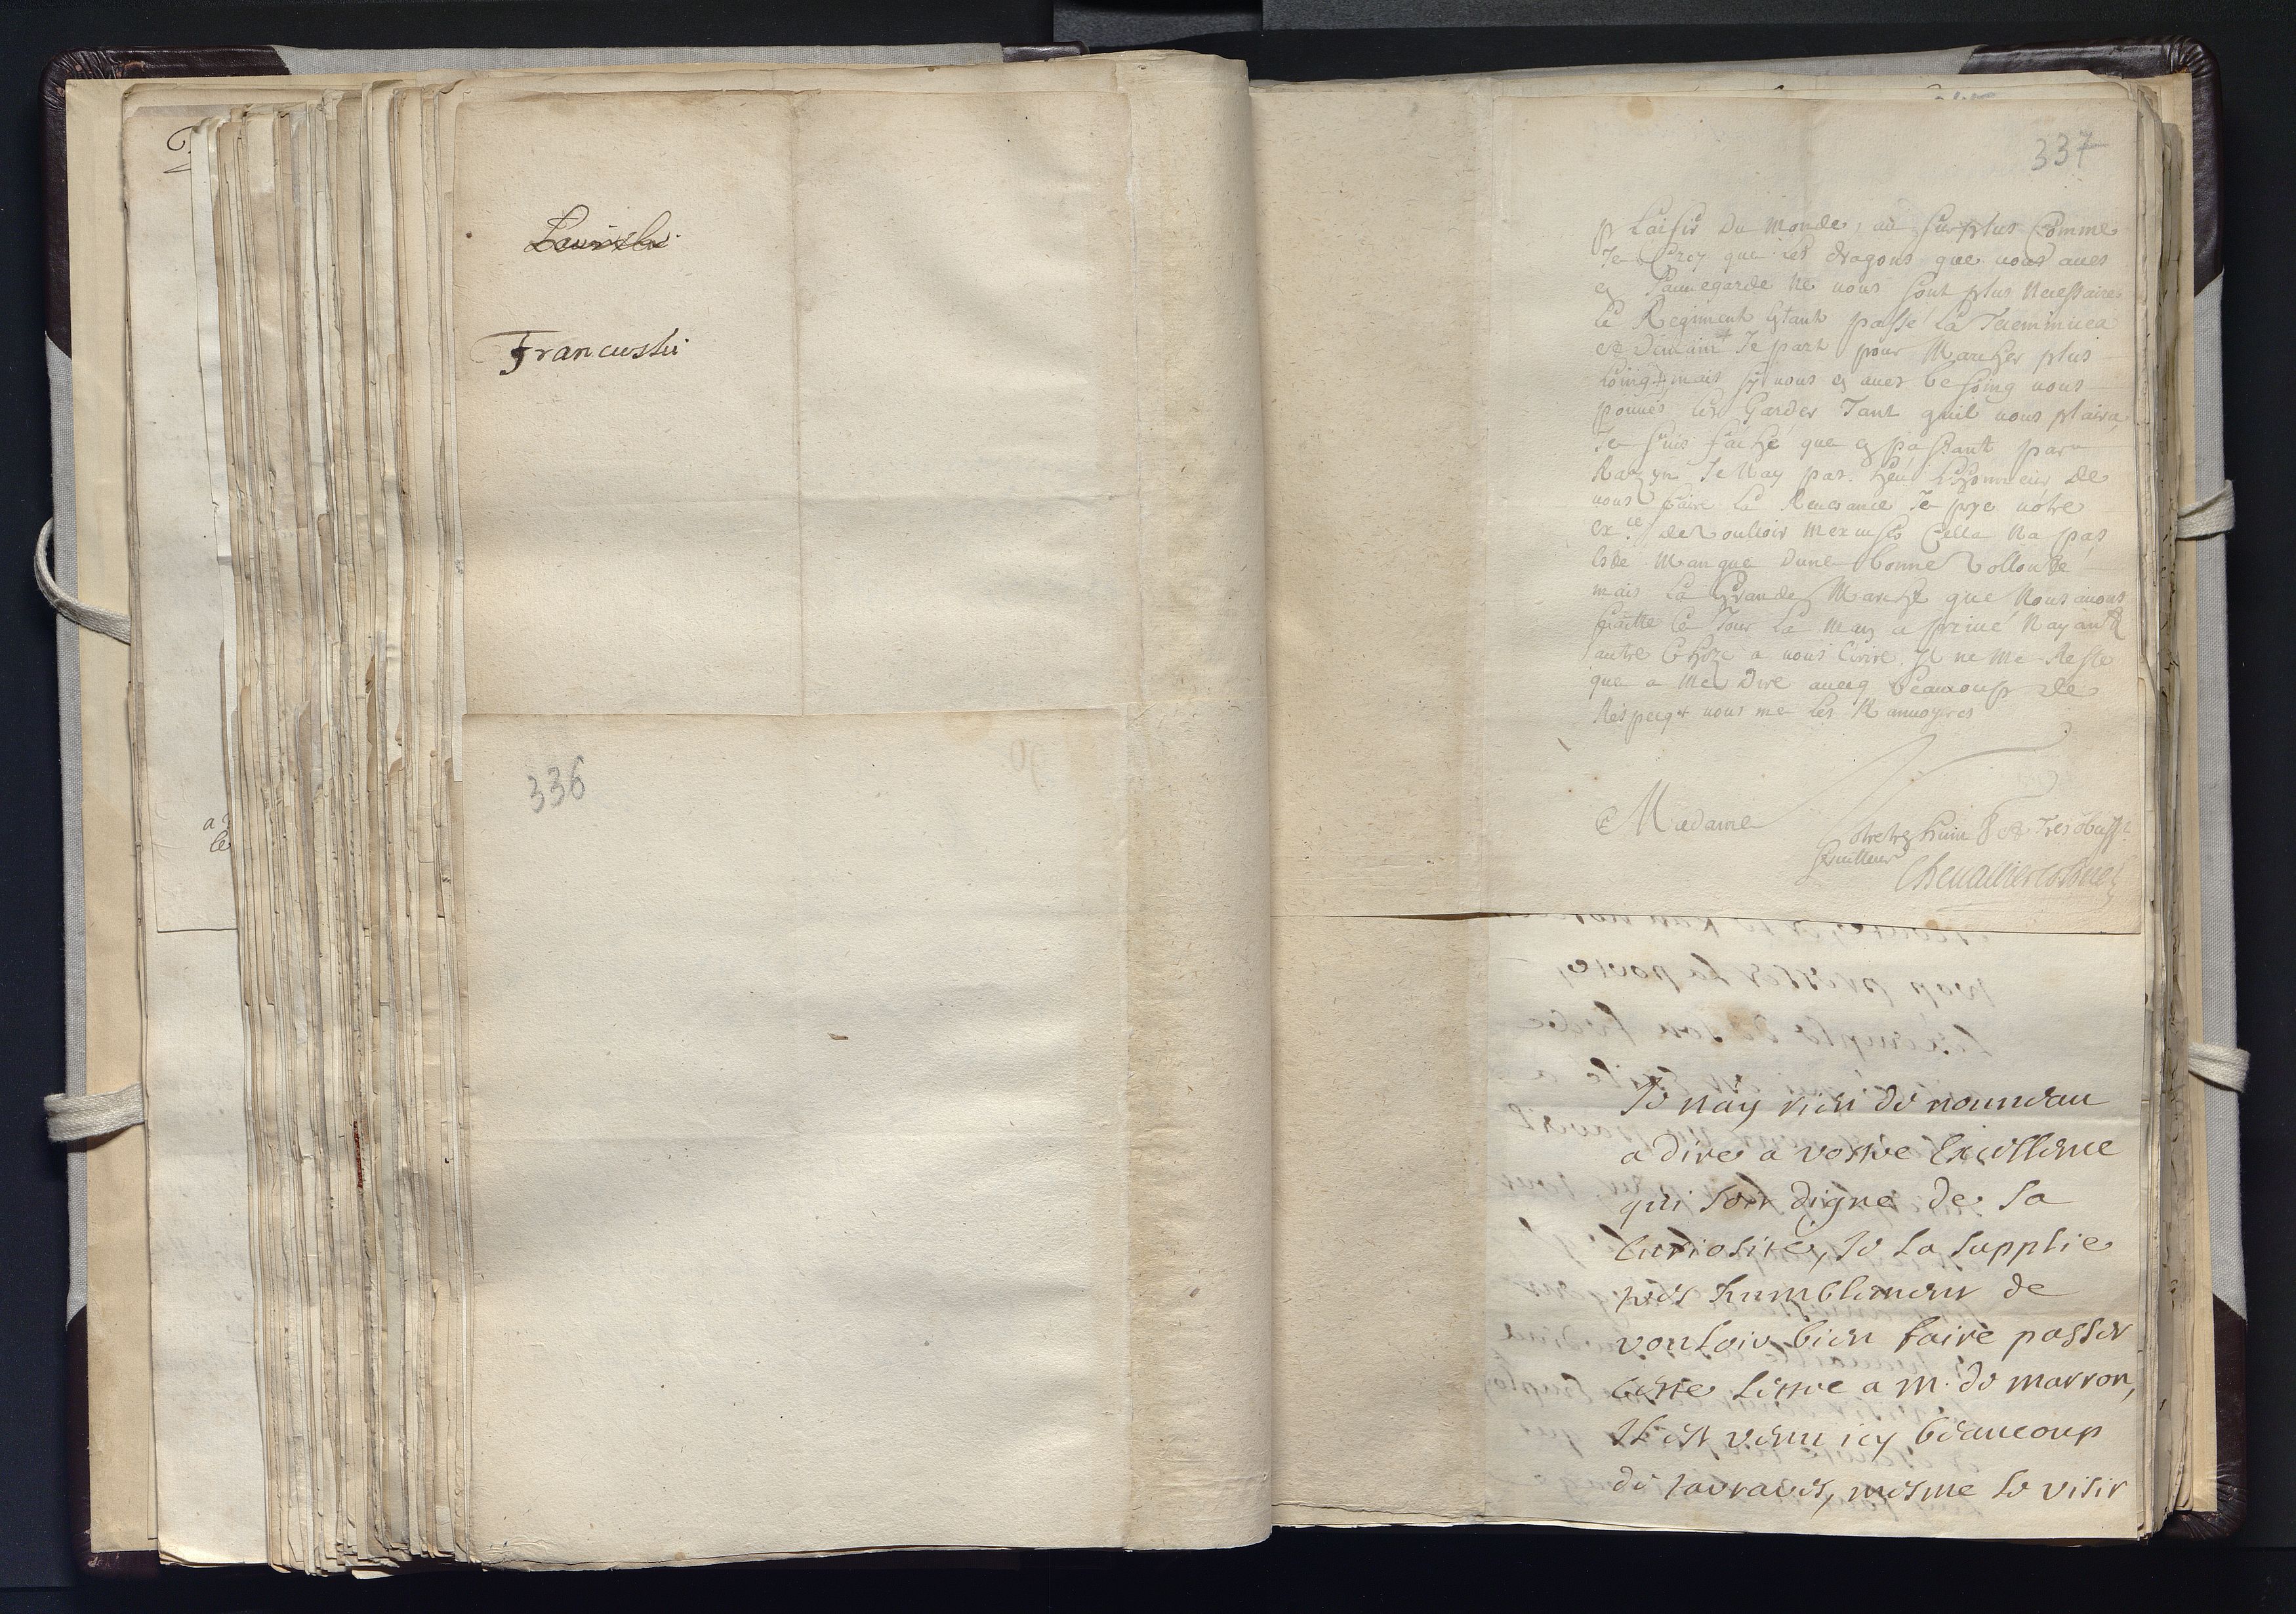 Francuski
336
337
plaisir du monde, au surplus Comme
Je Croy que les dragons que vous aues
en Sauuegarde ne vous sont plus Necessaire
le Regiment Estant passé La
et demain Je part pour Marcher plus
Loing mais sy vous en aues besoing vous
pouues les Garder Tant quil vous plaira
Je suis faché que en passant par
Je Nay pas heu L'Honneur de
vous faire La Reuerance Je prye votre
ex.ce de Voulloir mexcuser Cella Na pas
esté Manque dune bonne Vollonté
mais La Grande Marche que Nous auons
faitte Ce Jour La Men a priué Nayant
autre Choze a vous Ecrire Il ne me Reste
que a me Dire auecq beaucoup de
Respecq vous me les Ranuoyeres
Madame
Votre tres humb et tres obeiss
Seruitteur
Cheuallier
Je n'ay rien de nouueau
a dire a vostre Excellence
qui soit digne de sa
curiosité, Je la supplie
tres humblement de
vouloir bien faire passer
cette lettre a M. de marron,
Il est venu icy beaucoup
de tartares, mesme le visir